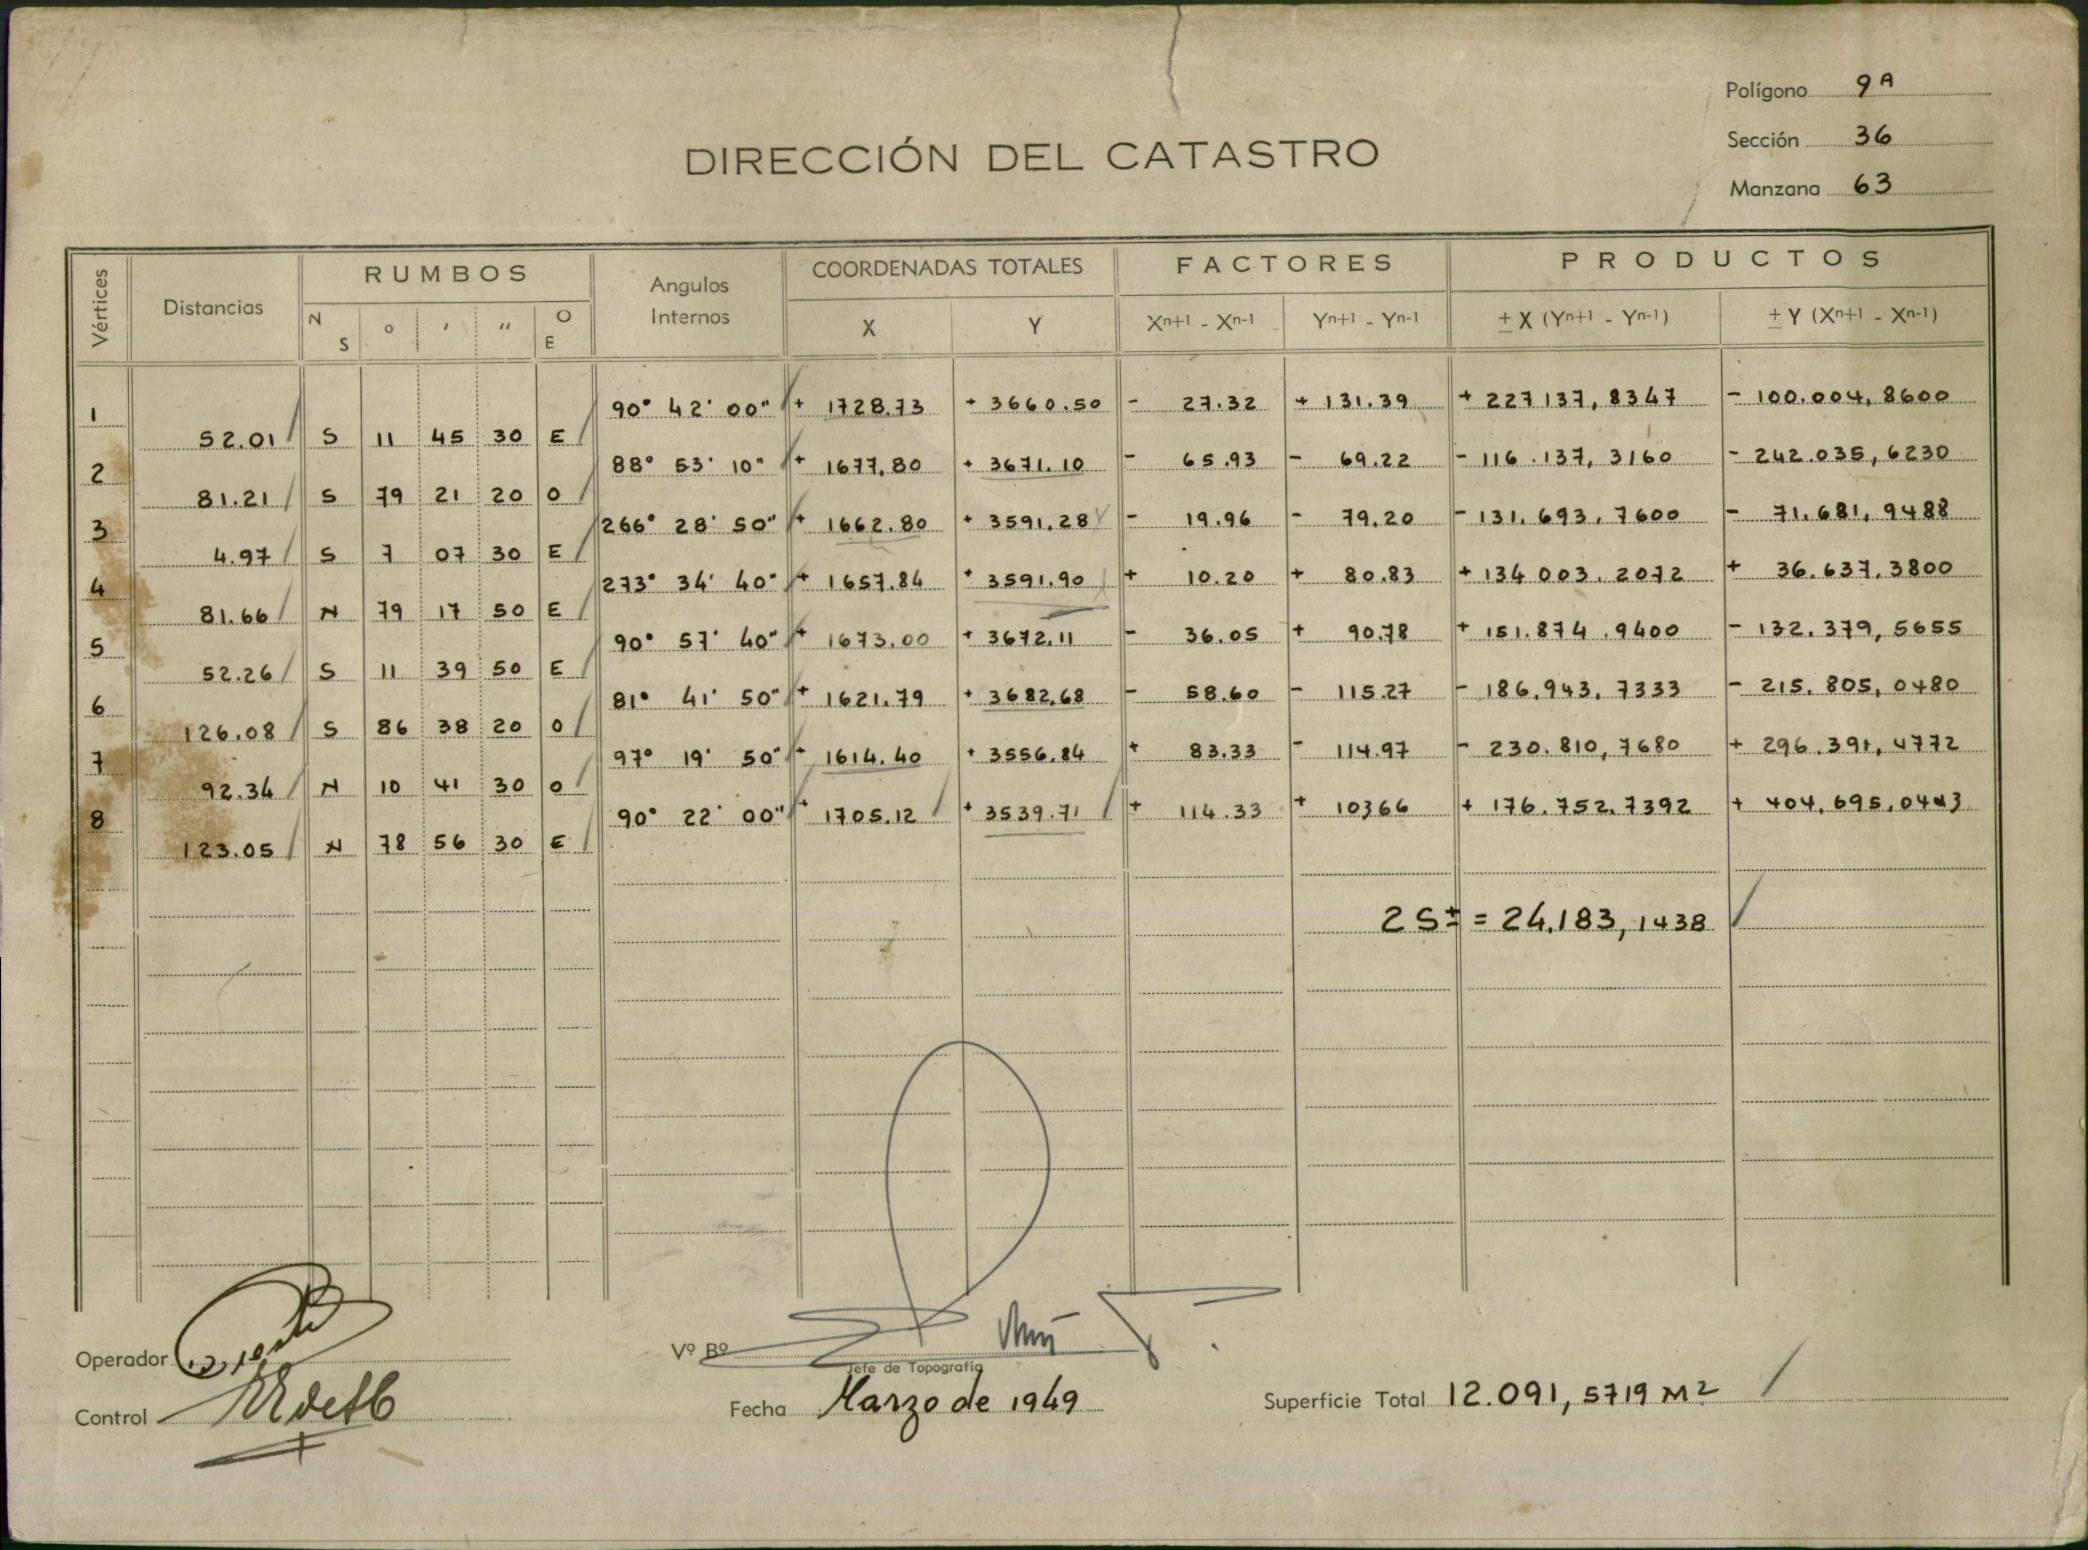 Polígono 9 A
Sección 36
Manzana 63
DIRECCIÓN DEL CATASTRO
Vértices Distancias RUMBOS Angulos Internos COORDENADAS TOTALES FACTORES PRODUCTOS
N S o ′ ″ O E X Y Xn+1 - Xn-1 Yn+1 - Yn-1 ± X (Yn+1 - Yn-1) ± Y (Xn+1 - Xn-1)
1 90° 42' 00" + 1728.73 + 3660.50 - 27.32 + 131.39 + 227137,8347 - 100.004,8600
52.01 S 11 45 30 E
2 88° 53' 10" + 1677.80 + 3671.10 - 65.93 - 69.22 - 116.137,3160 - 242.035,6230
81.21 S 79 21 20 O
3 266° 28' 50" + 1662.80 + 3591.28 - 19.96 - 79.20 - 131.693,7600 - 71.681,9488
4.97 S 7 07 30 E
4 273° 34' 40" + 1657.84 + 3591.90 + 10.20 + 80.83 + 134003.2072 + 36.637,3800
81.66 N 79 17 50 E
5 90° 57' 40" + 1673.00 + 3672.11 - 36.05 + 90.78 + 151.874.9400 - 132.379,5655
52.26 S 11 39 50 E
6 81° 41' 50" + 1621.79 + 3682.68 - 58.60 - 115.27 - 186.943,7333 - 215.805,0480
126.08 S 86 38 20 O
7 97° 19' 50" + 1614.40 + 3556.84 + 83.33 - 114.97 - 230.810,7680 + 296.391,4772
92.34 N 10 41 30 O
8 90° 22' 00" + 1705.12 + 3539.71 + 114.33 + 10366 + 176.752.7392 + 404.695,0443
123.05 N 78 56 30 E
2 S± = 24.183,1438
Operador
Vº Bº
Jefe de Topografía
Control
Fecha Marzo de 1949
Superficie Total 12.091,5719 M2